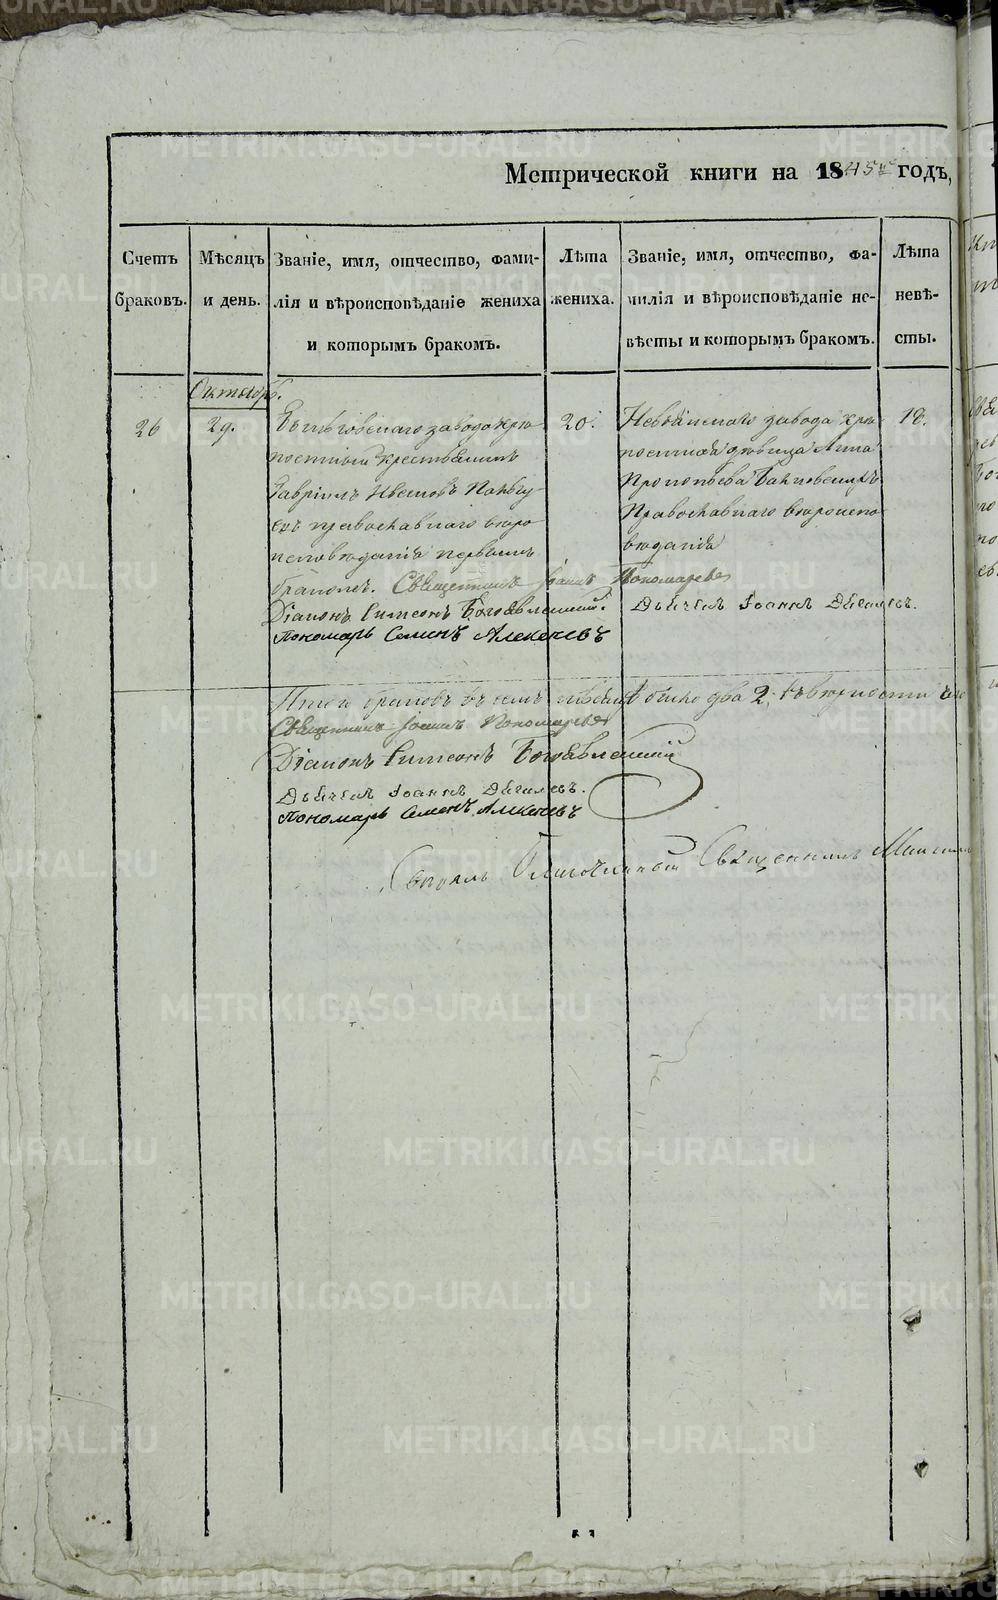 Метрической книги на 1845й годъ,
Счетъ браковъ.
Мѣсяцъ и день.
Званіе, имя, отчество, фами-
лія и вѣроисповѣданіе жениха
и которымъ бракомъ.
Лѣта
жениха.
Званіе, имя, отчество, фа-
милія и вѣроисповѣданіе не-
вѣсты и которымъ бракомъ.
Лѣта
невѣ-
сты.
Октябрь.
26
29.
завода крѣ
постный крестьянинъ
Гавріилъ Ивановъ
православнаго вѣро
исповѣданія первымъ
бракомъ. Священникъ Іоаннъ Пономаревъ
Діаконъ Симеонъ Богоявленскій.
Пономарь Семенъ Алексѣевъ
20.
Невьянскаго завода крѣ
постная дѣвица Анна
Прокопьева
Православнаго вѣроиспо
вѣданія
Дьячекъ Іоаннъ Дягилевъ.
18.
Итого браковъ въ семъ было два 2. въ вѣрности
Священникъ Іоаннъ Пономаревъ
Діаконъ Симеонъ Богоявленскій
Дьячекъ Іоаннъ Дягилевъ.
Пономарь Семенъ Алексѣевъ
Свѣрялъ Благочинный Священникъ
METRIKI.GASO-URAL.RU